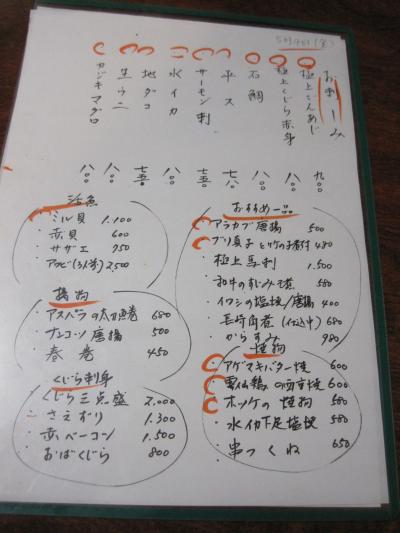 5月4日(金)
お刺しみ
極上こんあじ
極上くじら赤身
石鯛
平ス
サーモン刺
水イカ
地ダコ
生ウニ
カジキマグロ
九〇〇
八〇〇
八〇〇
七八〇
七五〇
八〇〇
七五〇
八〇〇
八〇〇
活魚
ミル貝 1.100
赤貝 600
サザエ 950
アワビ(3人前) 2,500
揚物
アスパラの太刀魚巻 680
ナンコツ唐揚 500
春巻 450
くじら刺身
くじら三点盛 2,000
さえずり 1.300
赤ベーコン 1.500
おばくじら 800
おすすめ一品
アラカブ唐揚 500
ブリ真子と竹の子煮付 480
極上馬刺 1.500
和牛のすじみそ煮 550
イワシの塩焼/唐揚 400
長崎角煮(仕込中) 680
からすみ 980
焼物
アゲマキバター焼 600
雲仙鶏の西京焼 600
ホッケの焼物 580
水イカ下足塩焼 580
串つくね 650